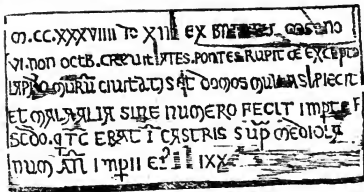 M.CC.XXXVIIII TC XIII EX
VI. NON OCTB. CREVIT ATES. PONTES RUPIT DE EXCEPTO
LAPRO. MURŪ CIVITATIS ET DOMOS MULTAS PIECIT
ET MALA ALIA SINE NUMERO FECIT IMPTE
SCDO. Q TC ERAT Ī CASTRIS SUP MEDIOLA
NUM AÑ IMPII EI IXX